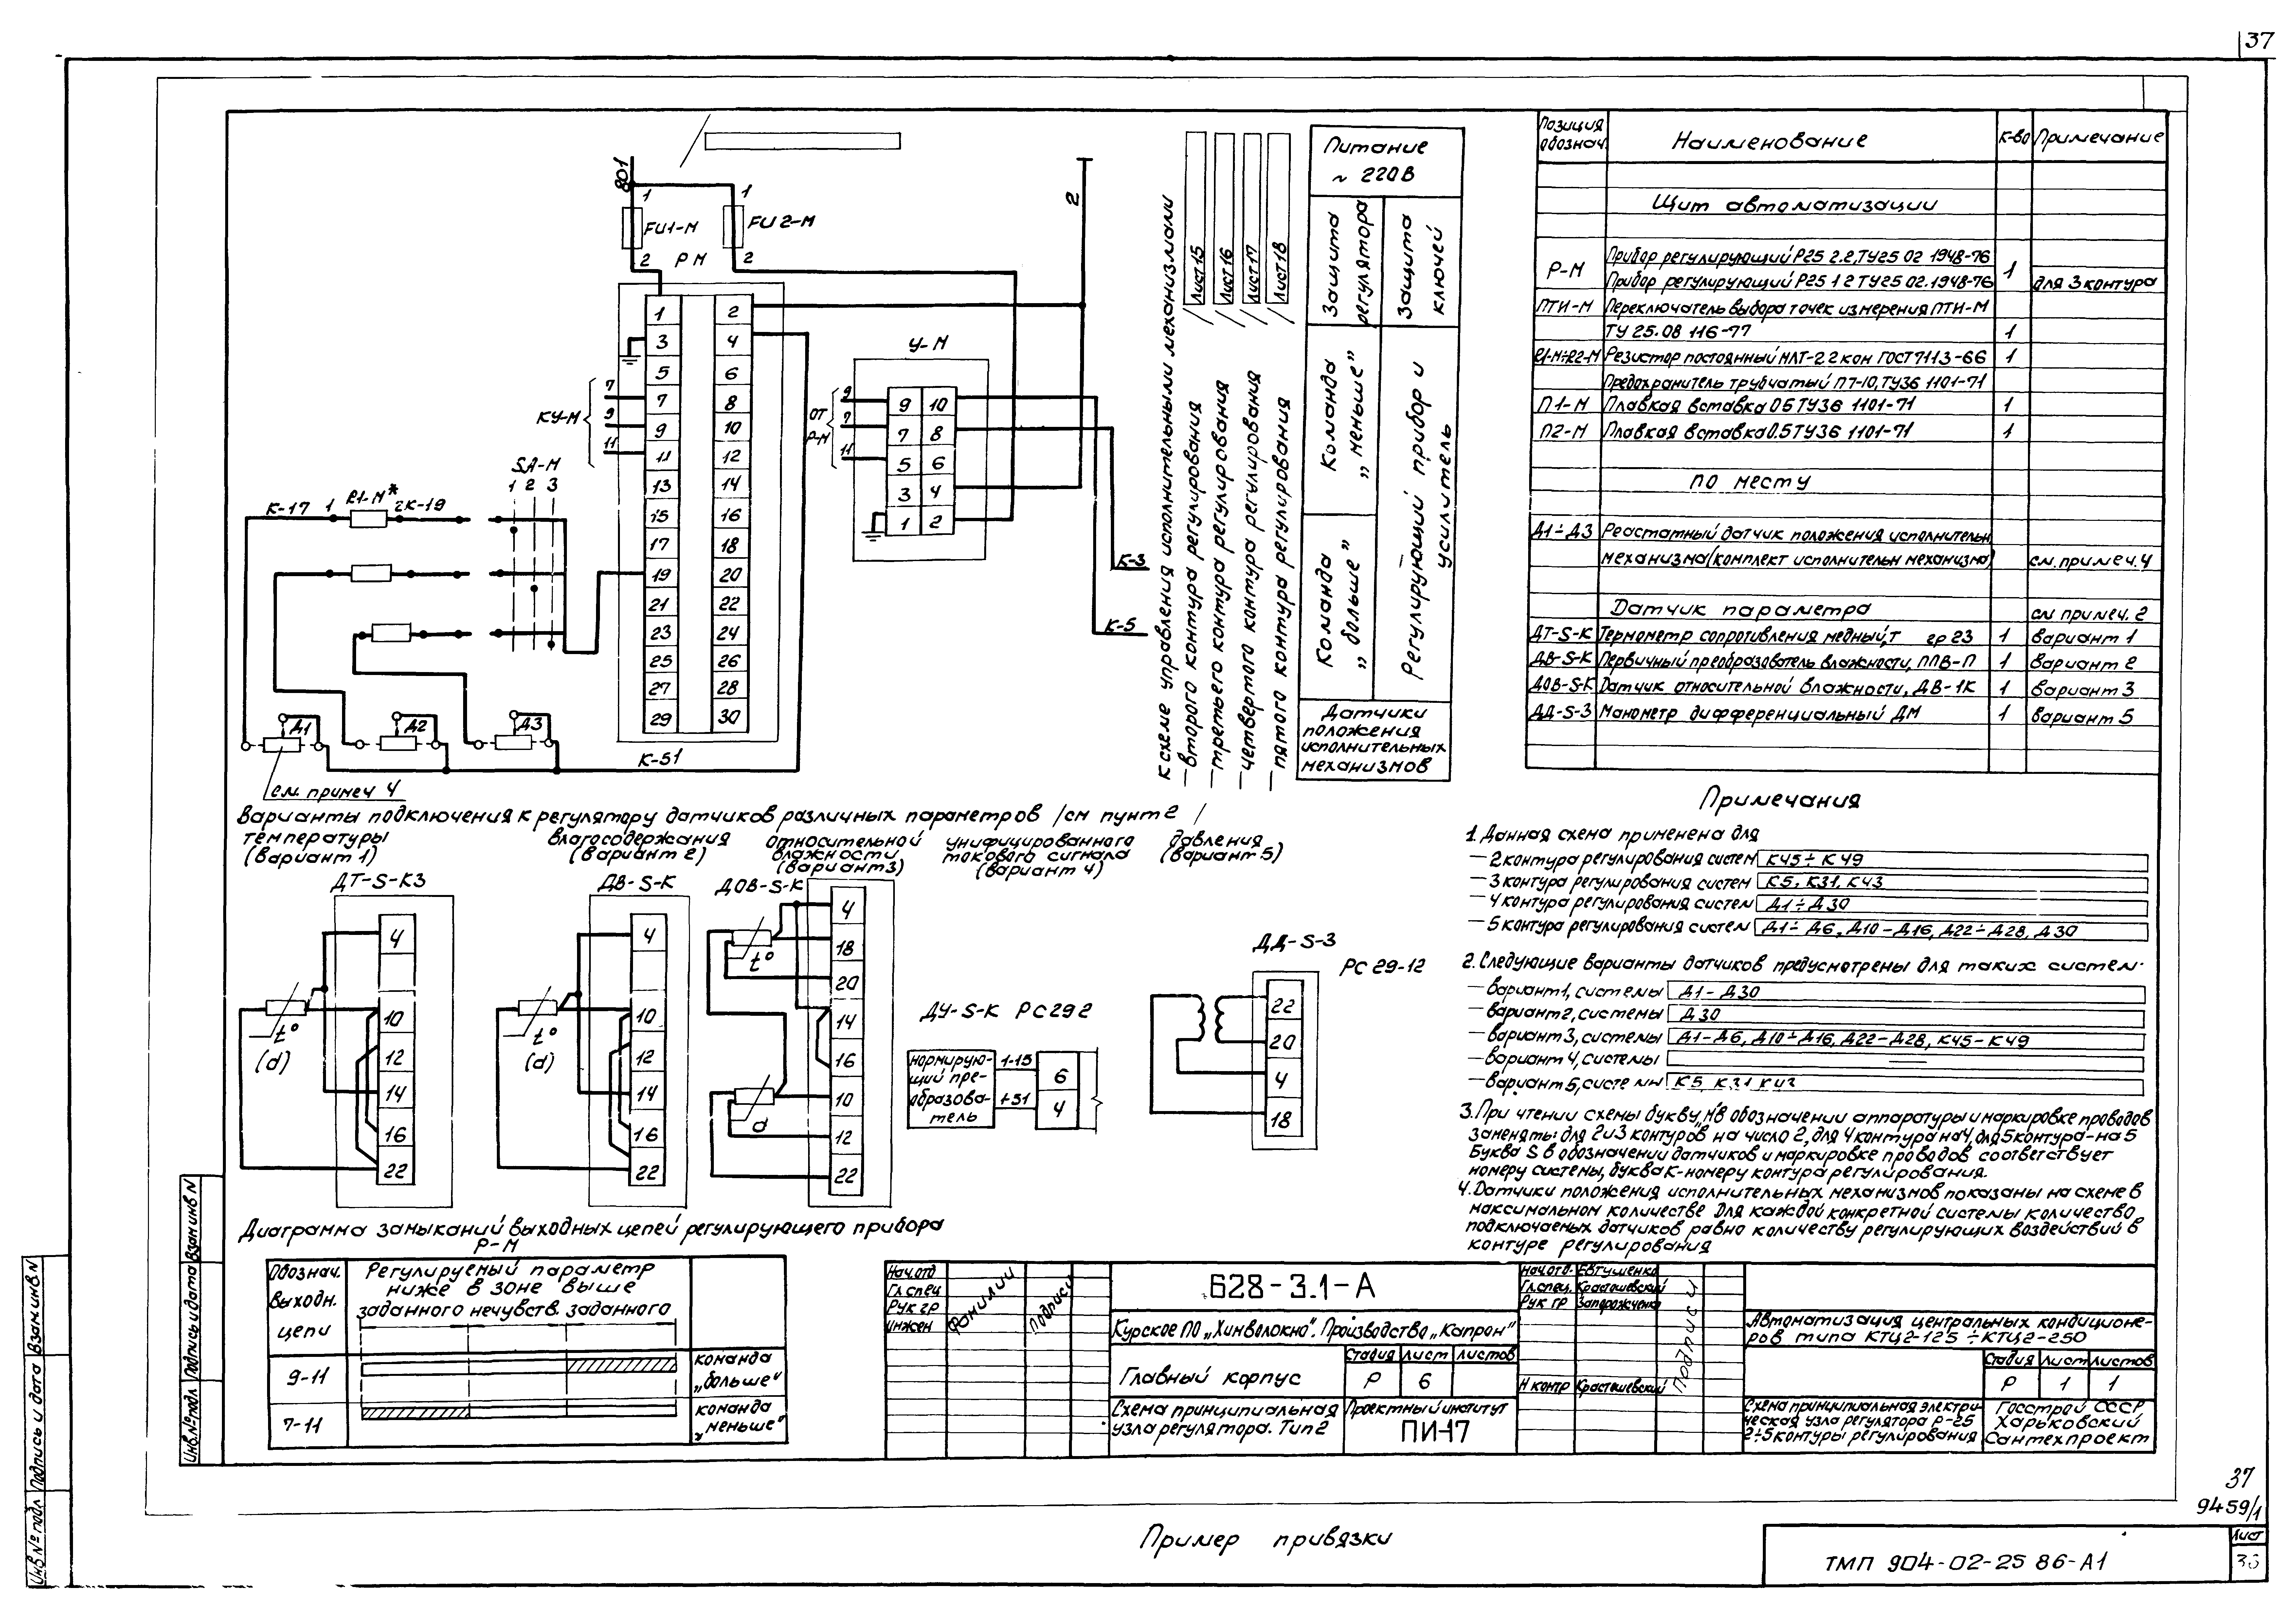 37
801
1
1
FU1-М
FU2-М
2
РМ
2
2
1 2
3 4
5 6
7 8
9 10
11 12
13 14
15 16
17 18
19 20
21 22
23 24
25 26
27 28
29 30
КУ-М
7
9
11
SA-М
1 2 3
К-17 1 R1-М* 2К-19
Д1
Д2
Д3
К-51
см. примеч 4
У-М
от Р-М
9
7
11
9 10
7 8
5 6
3 4
1 2
К-3
К-5
к схеме управления исполнительными механизмами
— второго контура регулирования / Лист 15
— третьего контура регулирования / Лист 16
— четвертого контура регулирования / Лист 17
— пятого контура регулирования / Лист 18
Питание
~ 220В
Защита регулятора
Защита ключей
Команда „меньше"
Команда „больше"
Регулирующий прибор и усилитель
Датчики
положения
исполнительных
механизмов
Позиция обознач. Наименование К-во Примечание
Щит автоматизации
Р-М Прибор регулирующий Р25 2.2, ТУ25 02 1948-76 1
Прибор регулирующий Р25 1 2 ТУ25 02.1948-76 для 3 контура
ПТИ-М Переключатель выбора точек измерения ПТИ-М
ТУ 25.08 116-77 1
R1-М÷R2-М Резистор постоянный МЛТ-2 2 ком ГОСТ 7113-66 1
Предохранитель трубчатый П7-10, ТУ36 1101-71
П1-М Плавкая вставка 0.5 ТУ36 1101-71 1
П2-М Плавкая вставка 0.5 ТУ36 1101-71 1
по месту
Д1÷Д3 Реостатный датчик положения исполнительн
механизма (комплект исполнительн механизма) см. примеч. 4
Датчик параметра см примеч. 2
ДТ-S-К Термометр сопротивления медный, т гр 23 1 вариант 1
ДВ-S-К Первичный преобразователь влажности, ППВ-П 1 вариант 2
ДОВ-S-К Датчик относительной влажности, ДВ-1К 1 вариант 3
ДД-S-3 Манометр дифференциальный ДМ 1 вариант 5
Варианты подключения к регулятору датчиков различных параметров /см пункт 2 /
температуры
(вариант 1)
влагосодержания
(вариант 2)
относительной
влажности
(вариант 3)
унифицированного
токового сигнала
(вариант 4)
давления
(вариант 5)
ДТ-S-К3
4
10
12
14
16
22
t°
(d)
ДВ-S-К
4
10
12
14
16
22
t°
(d)
ДОВ-S-К
4
18
20
14
16
10
12
22
t°
d
ДУ-S-К РС 29 2
нормирую-
щий пре-
образова-
тель
1-15
1-51
6
4
ДД-S-3
РС 29-12
22
20
4
18
Примечания
1. Данная схема применена для
— 2 контура регулирования систем К45÷К49
— 3 контура регулирования систем К5, К31, К43
— 4 контура регулирования систем Д1÷Д30
— 5 контура регулирования систем Д1÷Д6, Д10-Д16, Д22÷Д28, Д30
2. Следующие варианты датчиков предусмотрены для таких систем:
— вариант 1, системы Д1-Д30
— вариант 2, системы Д30
— вариант 3, системы Д1-Д6, Д10÷Д16, Д22-Д28, К45-К49
— вариант 4, системы —
— вариант 5, системы К5, К31 К43
3. При чтении схемы букву „М" в обозначении аппаратуры и маркировке проводов
заменять: для 2 и 3 контуров на число 2, для 4 контура на 4, для 5 контура-на 5
Буква S в обозначении датчиков и маркировке проводов соответствует
номеру системы, буква К-номеру контура регулирования.
4. Датчики положения исполнительных механизмов показаны на схеме в
максимальном количестве Для каждой конкретной системы количество
подключаемых датчиков равно количеству регулирующих воздействий в
контуре регулирования
Диаграмма замыканий выходных цепей регулирующего прибора
Р-М
Обознач. выходн. цепи
Регулируемый параметр
ниже в зоне выше
заданного нечувств. заданного
9-11 команда „больше"
7-11 команда „меньше"
Нач.отд
Гл спец
Рук гр
инжен
Фамилии
Подписи
628-3.1-А
Курское ПО „Химволокно". Производство „Капрон"
Главный корпус
Стадия Лист Листов
Р 6
Схема принципиальная
узла регулятора. Тип 2
Проектный институт
ПИ-17
Нач.отд. Евтушенко
Гл.спец. Красташевский
Рук гр Запорожченко
Н контр Красташевский
Подписи
Автоматизация центральных кондиционе-
ров типа КТЦ2-125÷КТЦ2-250
Стадия Лист Листов
Р 1 1
Схема принципиальная электри-
ческая узла регулятора Р-25
2÷5 контуры регулирования
Госстрой СССР
Харьковский
Сантехпроект
Инв.№подл Подпись и дата Взам инв N
Инв № подл Подпись и дата Взам инв. N
37
9459/1
Пример привязки
ТМП 904-02-25 86-А1
Лист